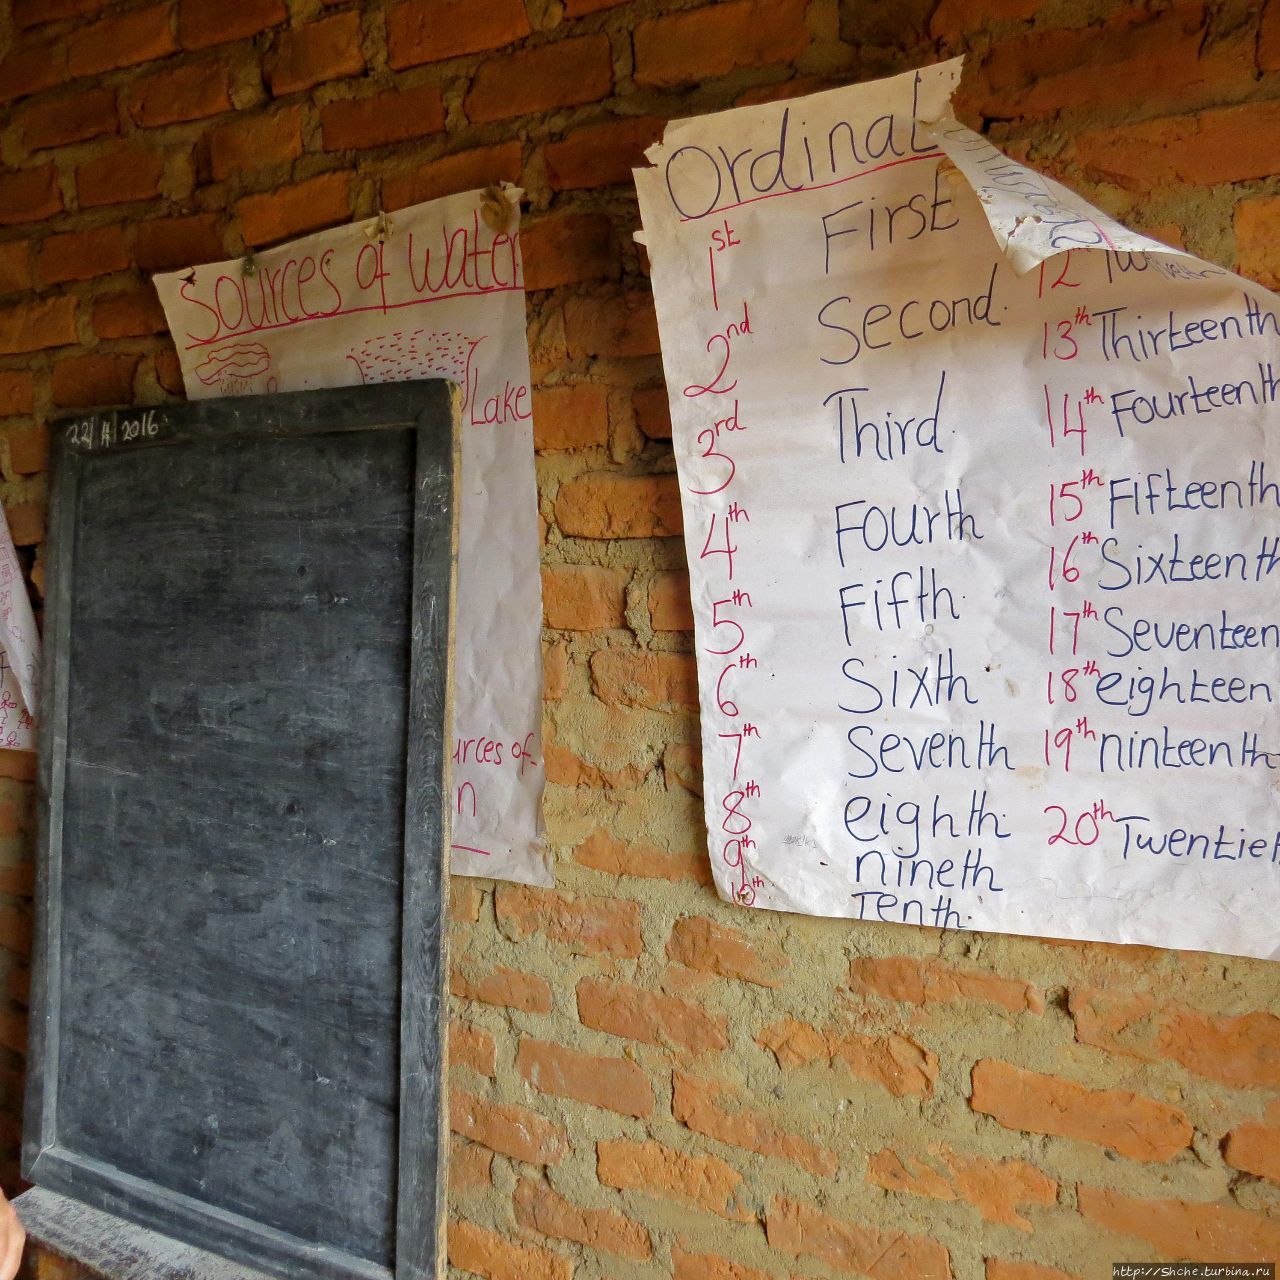 Sources of Water
Lake
urces of
n
22/4/2016
Ordinal
1st First
2nd Second.
3rd Third.
4th Fourth
5th Fifth.
6th Sixth
7th Seventh
8th eighth.
9th nineth
10th Tenth.
12
13th Thirteenth
14th Fourteenth
15th Fifteenth
16th Sixteenth
17th Seventeen
18th eighteen
19th ninteenth
20th Twentiet
http://Shche.turbina.ru